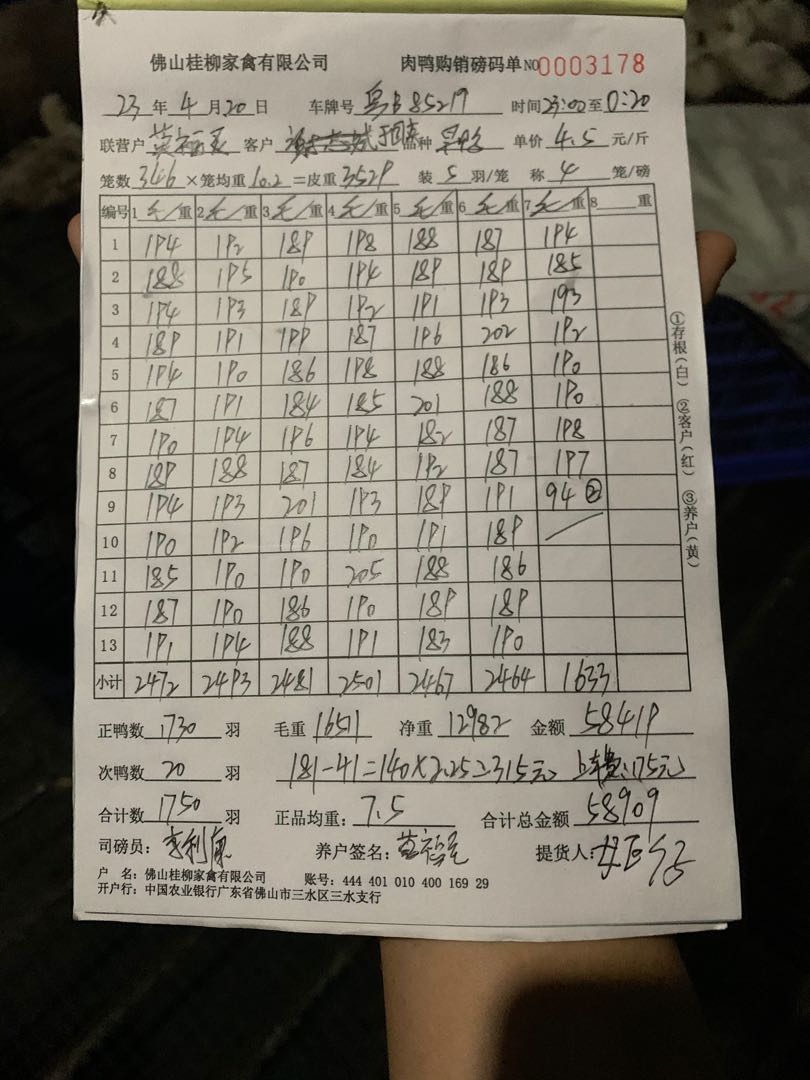 佛山桂柳家禽有限公司 肉鸭购销磅码单 NO 0003178
23 年 4 月 20 日 车牌号 85219 时间 23:00 至 0:20
联营户 客户 品种 单价 4.5 元/斤
笼数 346 ×笼均重 10.2 =皮重 3529 装 5 羽/笼 称 4 笼/磅
编号 1 毛/重 2 毛/重 3 毛/重 4 毛/重 5 毛/重 6 毛/重 7 毛/重 8 重
1 194 192 189 198 188 187 194
2 188 195 190 194 189 189 185
3 194 193 189 192 191 193 193
4 189 191 199 187 196 202 192
5 194 190 186 198 188 186 190
6 187 191 184 185 201 188 190
7 190 194 196 194 182 187 198
8 189 188 187 184 192 187 197
9 194 193 201 193 189 191 94 ②
10 190 192 196 190 191 189 /
11 185 190 190 205 188 186
12 187 190 186 190 189 189
13 191 194 188 191 183 190
小计 2472 2493 2481 2501 2467 2464 1633
①存根(白) ②客户(红) ③养户(黄)
正鸭数 1730 羽 毛重 16511 净重 12982 金额 58419
次鸭数 20 羽 181-41=140×2.25=315元 上车费:175元
合计数 1750 羽 正品均重: 7.5 合计总金额 58909
司磅员: 李利 养户签名: 提货人:
户 名: 佛山桂柳家禽有限公司 账号: 444 401 010 400 169 29
开户行: 中国农业银行广东省佛山市三水区三水支行